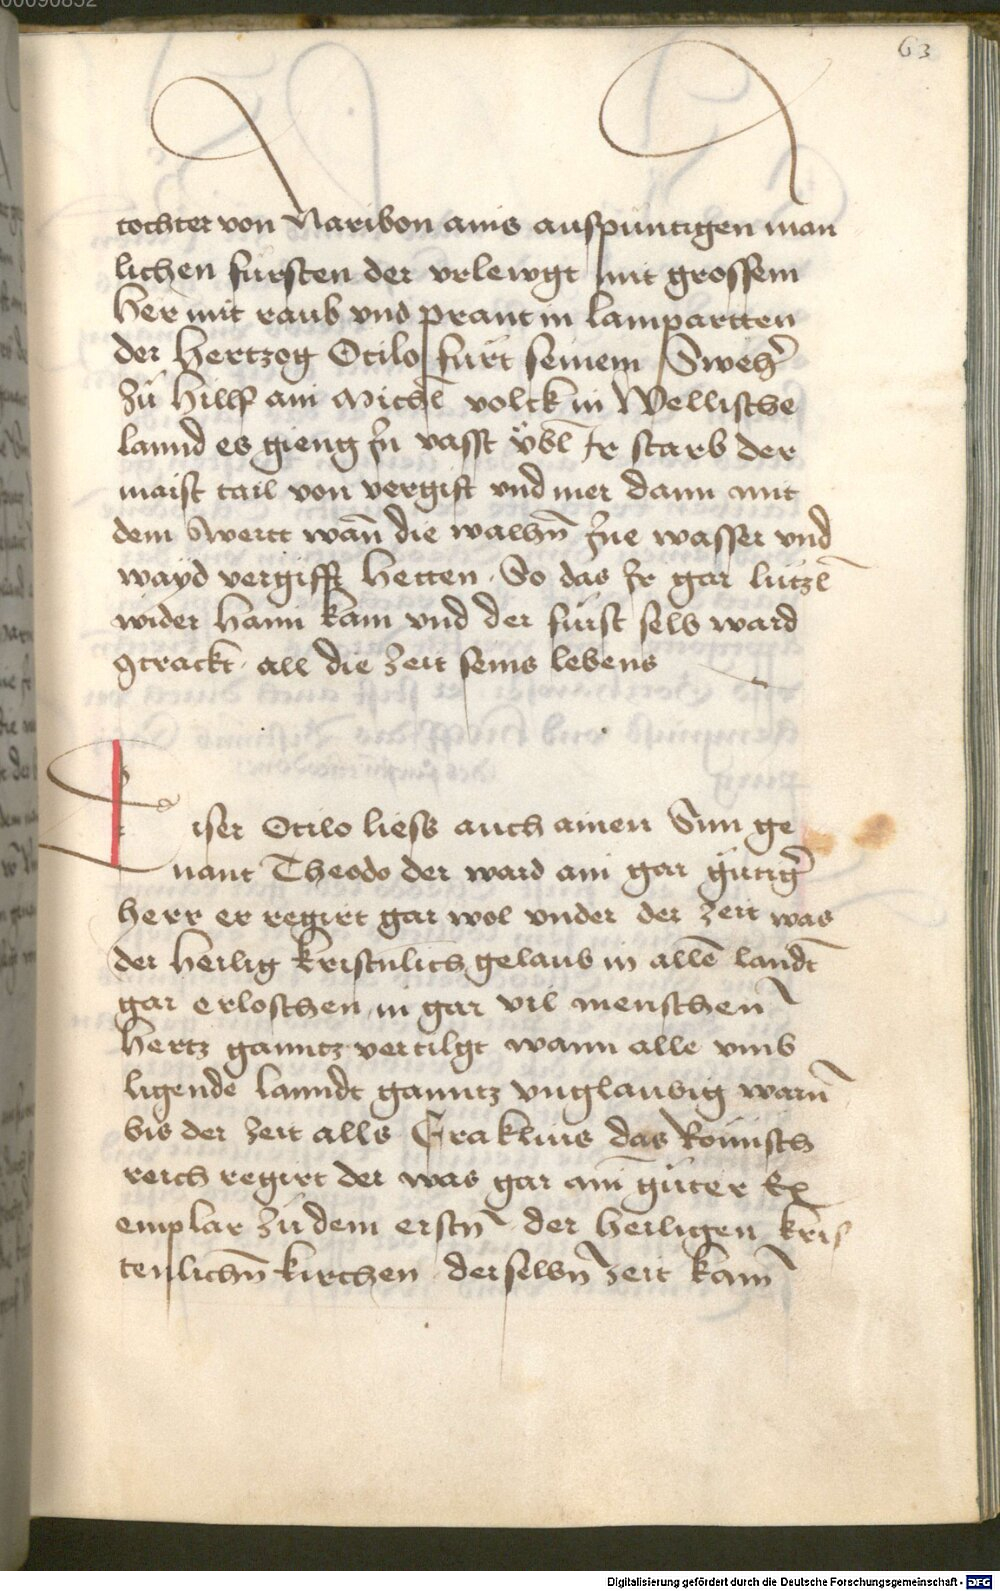 00090852
63
tochter von Naribon ains auspüntigen man
lichen fürsten der vrlewgt mit grossem
her mit raub vnd prant in lampartten
der hertzog Otilo fürt seinem Sweh͛
zü hillf ain michl̄ volck in Wellische
lannd es gieng jn̄ vasst v̈bl̄ Jr starb der
maist tail von vergift vnd mer dann mit
dem Swertt wan̄ die walhn̄ jne wasser vnd
wayd vergifft hetten · So das Jr gar lützl̄
wider haim kam vnd der fürst selb ward
9trackt · all die zeit seins lebens
Diser Otilo liess auch ainen Sun ge
nant Theodo der ward ain gar gütig͛
herr er regirt gar wol vnder der zeit was
der heilig kristnlich gelaub in alln̄ landt̄
gar erloschen in gar vil menschen
hertz ganntz vertilgt wann alle vmb
ligende lanndt ganntz vnglaubig warn̄
bis der zeit alls Eraklius das Römisch
reich regirt der was gar ain güter Ex
emplar zü dem erstn̄ der heiligen kris
tenlichn̄ kirchen derselbn̄ zeit kam
Digitalisierung gefördert durch die Deutsche Forschungsgemeinschaft - DFG